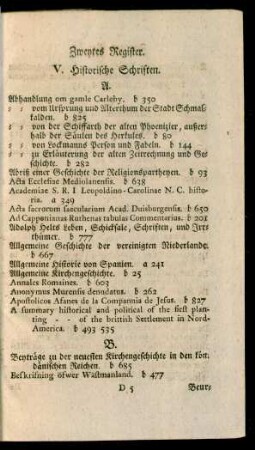 Zweytes Register.
V. Historische Schriften.
A.
Abhandlung om gamle Carleby. b 350
⸗ ⸗ vom Ursprung und Alterthum der Stadt Schmal⸗
kalden. b 825
⸗ ⸗ von der Schiffarth der alten Phoenizier, ausser⸗
halb der Säulen des Herkules. b 80
⸗ ⸗ von Lockmanns Person und Fabeln. b 144
⸗ ⸗ zu Erläuterung der alten Zeitrechnung und Ges
schichte. b 282
Abriß einer Geschichte der Religionspartheyen. b 93
Acta Ecclesiae Mediolanensis. b 638
Academiae S. R. I Leopoldino-Carolinae N. C. histo-
ria. a 349
Acta sacrorum saecularium Acad. Duisburgensis. b 650
Ad Capponianas Ruthenas tabulas Commentarius. b 201
Adolph Helts Leben, Schicksale, Schriften, und Irr⸗
thümer. b 777
Allgemeine Geschichte der vereinigten Niederlande.
a 667
Allgemeine Historie von Spanien. a 241
Allgemeine Kirchengeschichte. b 25
Annales Romaines. b 603
Anonymus Murensis denudatus. b 262
Apostolicos Afanes de la Compannia de Jesus. b 827
A summary historical and political of the first plan-
ting - - of the brittish Settlement in Nord-
America. b 493 535
B.
Beyträge zu der neuesten Kirchengeschichte in den kön.
dänischen Reichen. b 685
Beskrifning öfwer Wäsmanland. b 477
D 5 Beur⸗